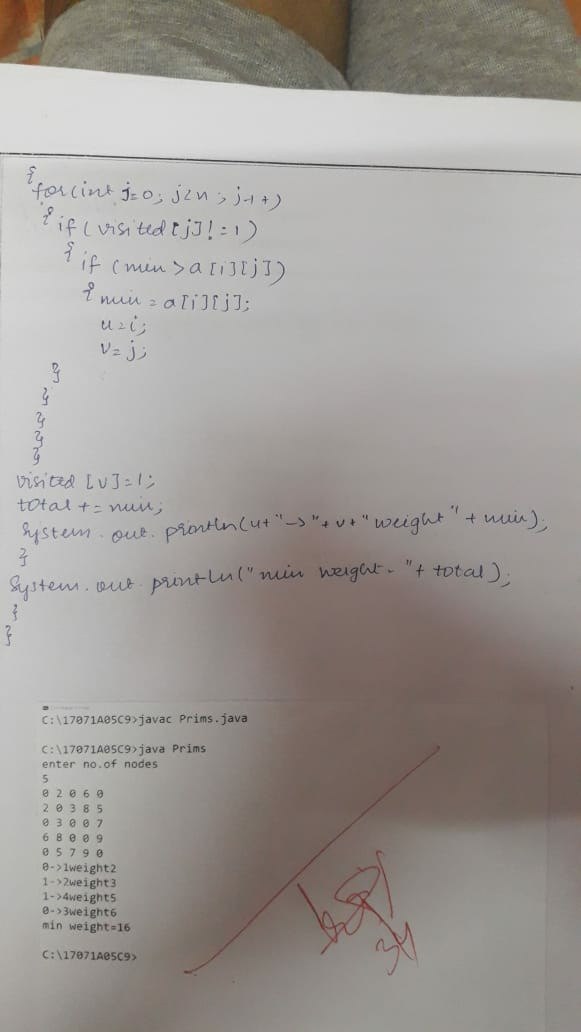 {
for(int j=0; j<n; j++)
{ if(visited[j]!=1)
{ if(min>a[i][j])
{ min=a[i][j];
u=i;
v=j;
}
}
}
}
}
visited[v]=1;
total+=min;
System.out.println(u+"->"+v+"weight"+min);
}
System.out.println("min weight="+total);
}
}
C:\17071A05C9>javac Prims.java
C:\17071A05C9>java Prims
enter no.of nodes
5
0 2 0 6 0
2 0 3 8 5
0 3 0 0 7
6 8 0 0 9
0 5 7 9 0
0->1weight2
1->2weight3
1->4weight5
0->3weight6
min weight=16
C:\17071A05C9>